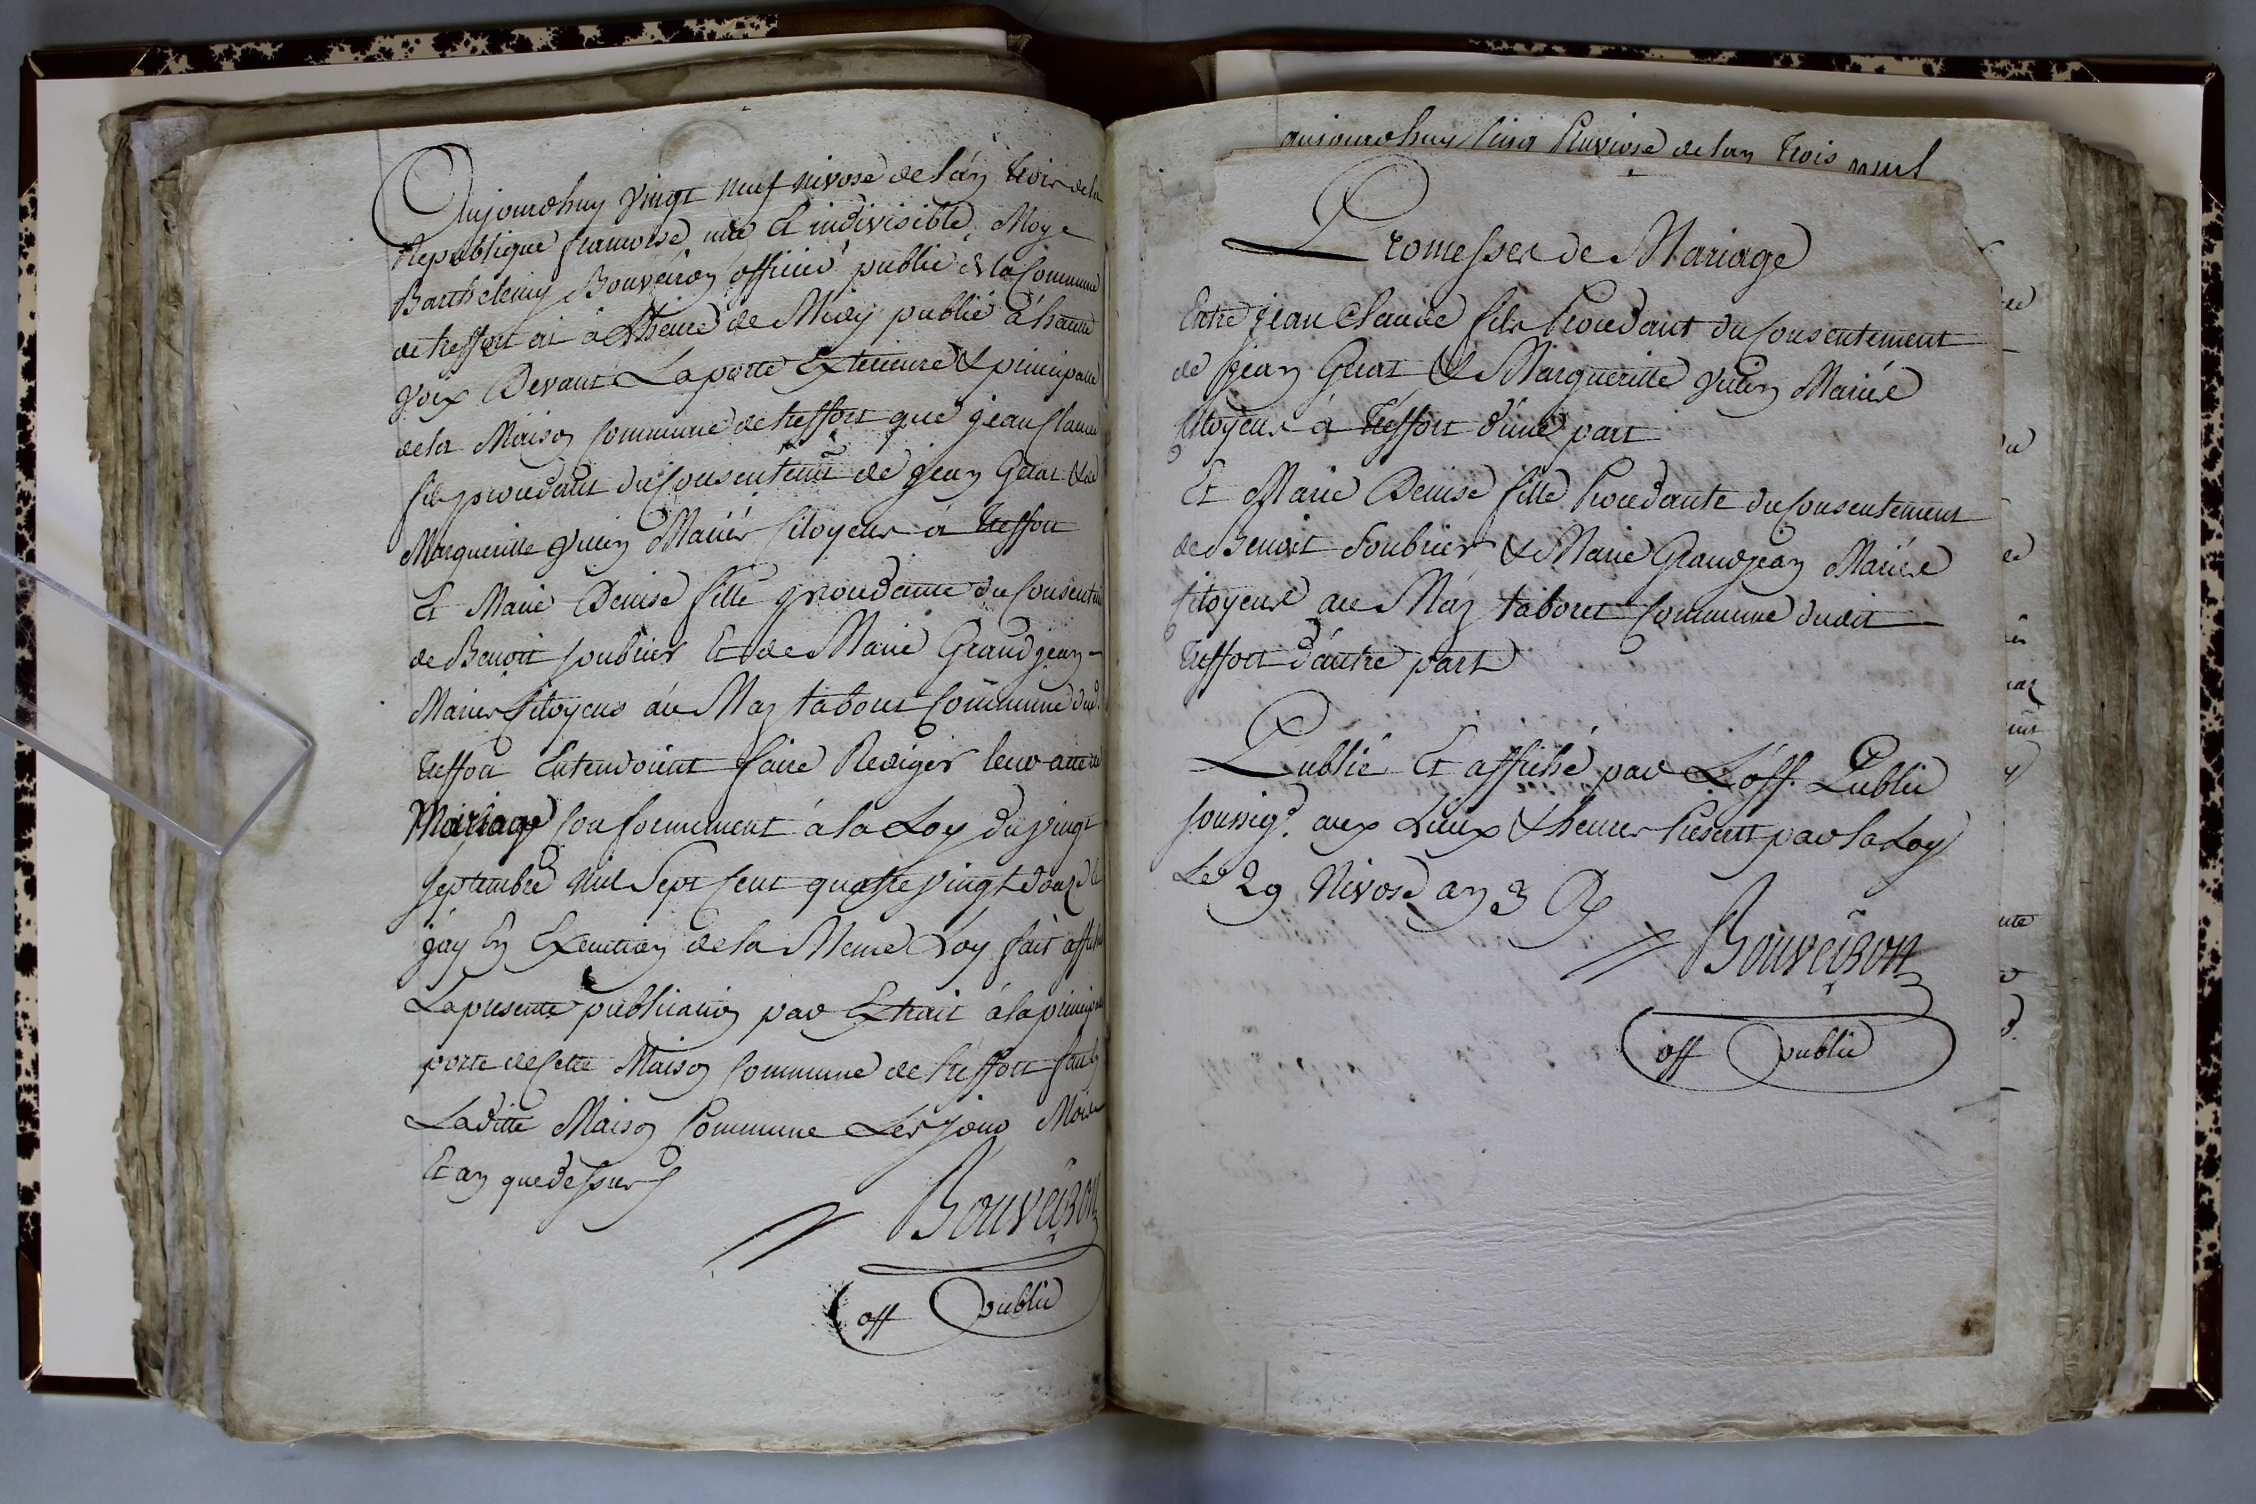 Aujourdhuy vingt neuf nivose de l'an trois de la
Republique francoise une et indivisible, Moy
Barthelemy Bouveiron officier public de la Commune
de treffort ai à L'heure de Midy publié à haute
voix Devant La porte Exterieure & principalle
de la Maison Commune de treffort que jean Claude
fils procedant du Consentemt de jean Gerat & de
Margueritte Mariés Citoyens à treffort
Et Marie Denise fille procedante du Consentem
de Benoit soubrier Et de Marie Grandjean
Mariés Citoyens au Maz tabouret Commune dud.
treffort Entendoient faire Rediger leur acte de
Mariage Conformement à la Loy du vingt
septembre mil sept Cent quatre vingt douze
jay En Execution de la Meme Loy fait affiché
La presente publication par Extrait à la principale
porte de Cette Maison Commune de treffort fait En
Laditte Maison Commune Les jour Mois
Et an que dessus
Bouveiron
off public
aujourdhuy Cinq Pluviose de lan trois
Promesses de Mariage
Entre jean Claude fils Procedant du Consentement
de jean Gerat & Margueritte Mariés
Citoyens à treffort d'une part
Et Marie Denise fille Procedante du Consentement
de Benoit Soubrier & Marie Grandjean Mariés
Citoyens au Maz tabouret Commune dudit
treffort d'autre part
Publié Et affiché par L'off. Public
soussigé. aux Lieux & heures Prescrit par la Loy
Le 29 Nivose an 3
Bouveiron
off public